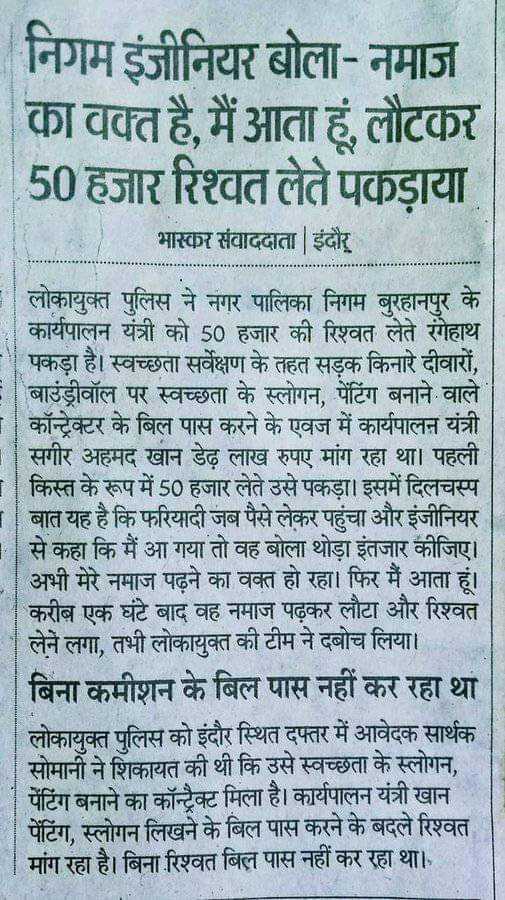 निगम इंजीनियर बोला- नमाज
का वक्त है, मैं आता हूं, लौटकर
50 हजार रिश्वत लेते पकड़ाया
भास्कर संवाददाता | इंदौर
लोकायुक्त पुलिस ने नगर पालिका निगम बुरहानपुर के
कार्यपालन यंत्री को 50 हजार की रिश्वत लेते रंगेहाथ
पकड़ा है। स्वच्छता सर्वेक्षण के तहत सड़क किनारे दीवारों,
बाउंड्रीवॉल पर स्वच्छता के स्लोगन, पेंटिंग बनाने वाले
कॉन्ट्रेक्टर के बिल पास करने के एवज में कार्यपालन यंत्री
सगीर अहमद खान डेढ़ लाख रुपए मांग रहा था। पहली
किस्त के रूप में 50 हजार लेते उसे पकड़ा। इसमें दिलचस्प
बात यह है कि फरियादी जब पैसे लेकर पहुंचा और इंजीनियर
से कहा कि मैं आ गया तो वह बोला थोड़ा इंतजार कीजिए।
अभी मेरे नमाज पढ़ने का वक्त हो रहा। फिर मैं आता हूं।
करीब एक घंटे बाद वह नमाज पढ़कर लौटा और रिश्वत
लेने लगा, तभी लोकायुक्त की टीम ने दबोच लिया।
बिना कमीशन के बिल पास नहीं कर रहा था
लोकायुक्त पुलिस को इंदौर स्थित दफ्तर में आवेदक सार्थक
सोमानी ने शिकायत की थी कि उसे स्वच्छता के स्लोगन,
पेंटिंग बनाने का कॉन्ट्रैक्ट मिला है। कार्यपालन यंत्री खान
पेंटिंग, स्लोगन लिखने के बिल पास करने के बदले रिश्वत
मांग रहा है। बिना रिश्वत बिल पास नहीं कर रहा था।